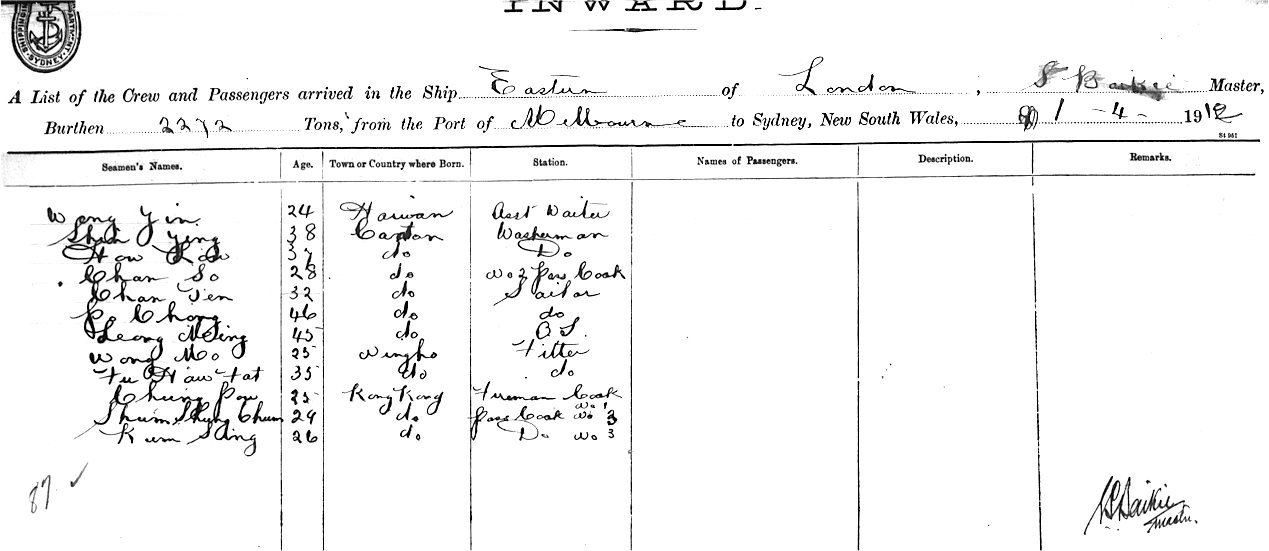 INWARD.
SHIPPING
SYDNEY
A List of the Crew and Passengers arrived in the Ship Eastern of London, Baikie Master,
Burthen 2272 Tons, from the Port of Melbourne to Sydney, New South Wales, 1-4-1912
St 951
Seamen's Names. Age. Town or Country where Born. Station. Names of Passengers. Description. Remarks.
Wong Yin 24 Asst Waiter
Shek Ying 38 Canton Washerman
How 37 do Do
Chan So 28 do No 2 Pass Cook
Chan Ten 32 do Sailor
Po Chong 46 do do
Leong Ming 45 do O.S.
Wong Mo 25 Ningho Fitter
Fu Haw Fat 35 do do
Chung Pow 25 Kong Kong Fireman Cook
Shum Shung Chum 29 do Pass Cook No 1
Kum Sang 26 do Do No 3
87 ✓
Baikie
Master.